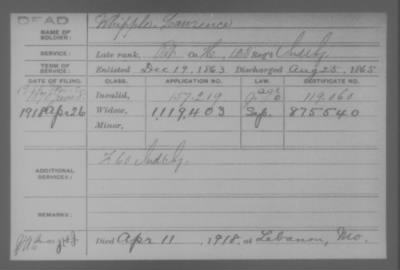 DEAD
NAME OF SOLDIER: Whipple, Lawrence
SERVICE: Late rank, Co. H, Reg't Ind.
TERM OF SERVICE: Enlisted Dec 19, 1863 Discharged Aug 25, 1865
DATE OF FILING. CLASS. APPLICATION NO. LAW. CERTIFICATE NO.
Invalid, 157,219 119.060
1918 Apr 26 Widow, 1,119,403 Sep. 875540
Minor,
ADDITIONAL SERVICES: F 60 Ind.
REMARKS:
Died Apr 11, 1918, at Lebanon, Mo.